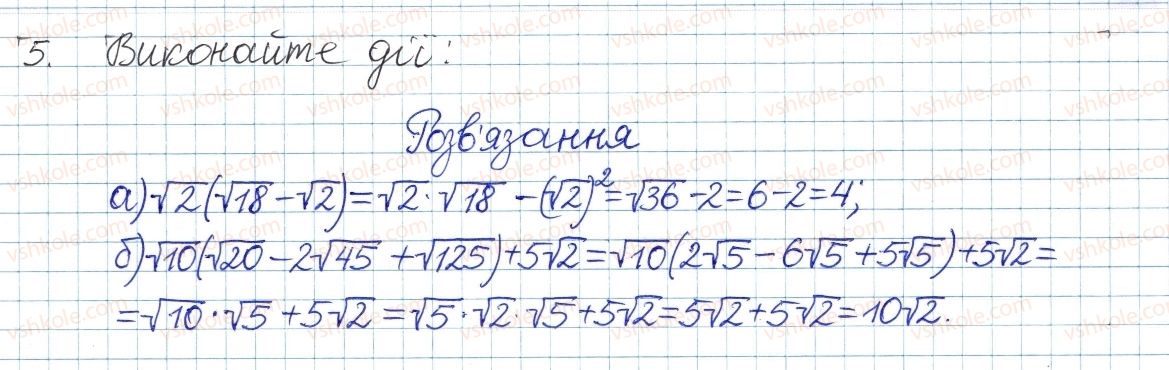 5. Виконайте дії:
Розв'язання
а) √2(√18 - √2) = √2 · √18 - (√2)² = √36 - 2 = 6 - 2 = 4;
б) √10(√20 - 2√45 + √125) + 5√2 = √10(2√5 - 6√5 + 5√5) + 5√2 =
= √10 · √5 + 5√2 = √5 · √2 · √5 + 5√2 = 5√2 + 5√2 = 10√2.